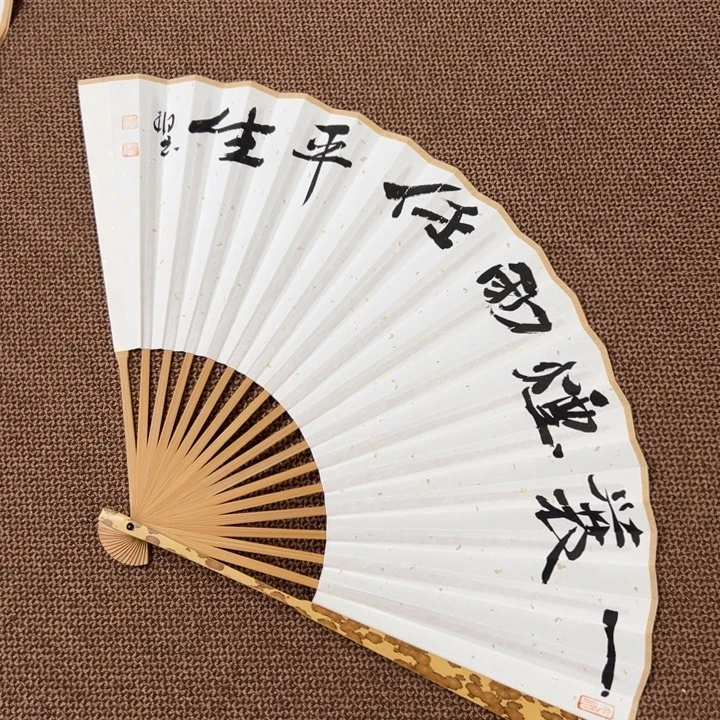 一蓑煙雨任平生